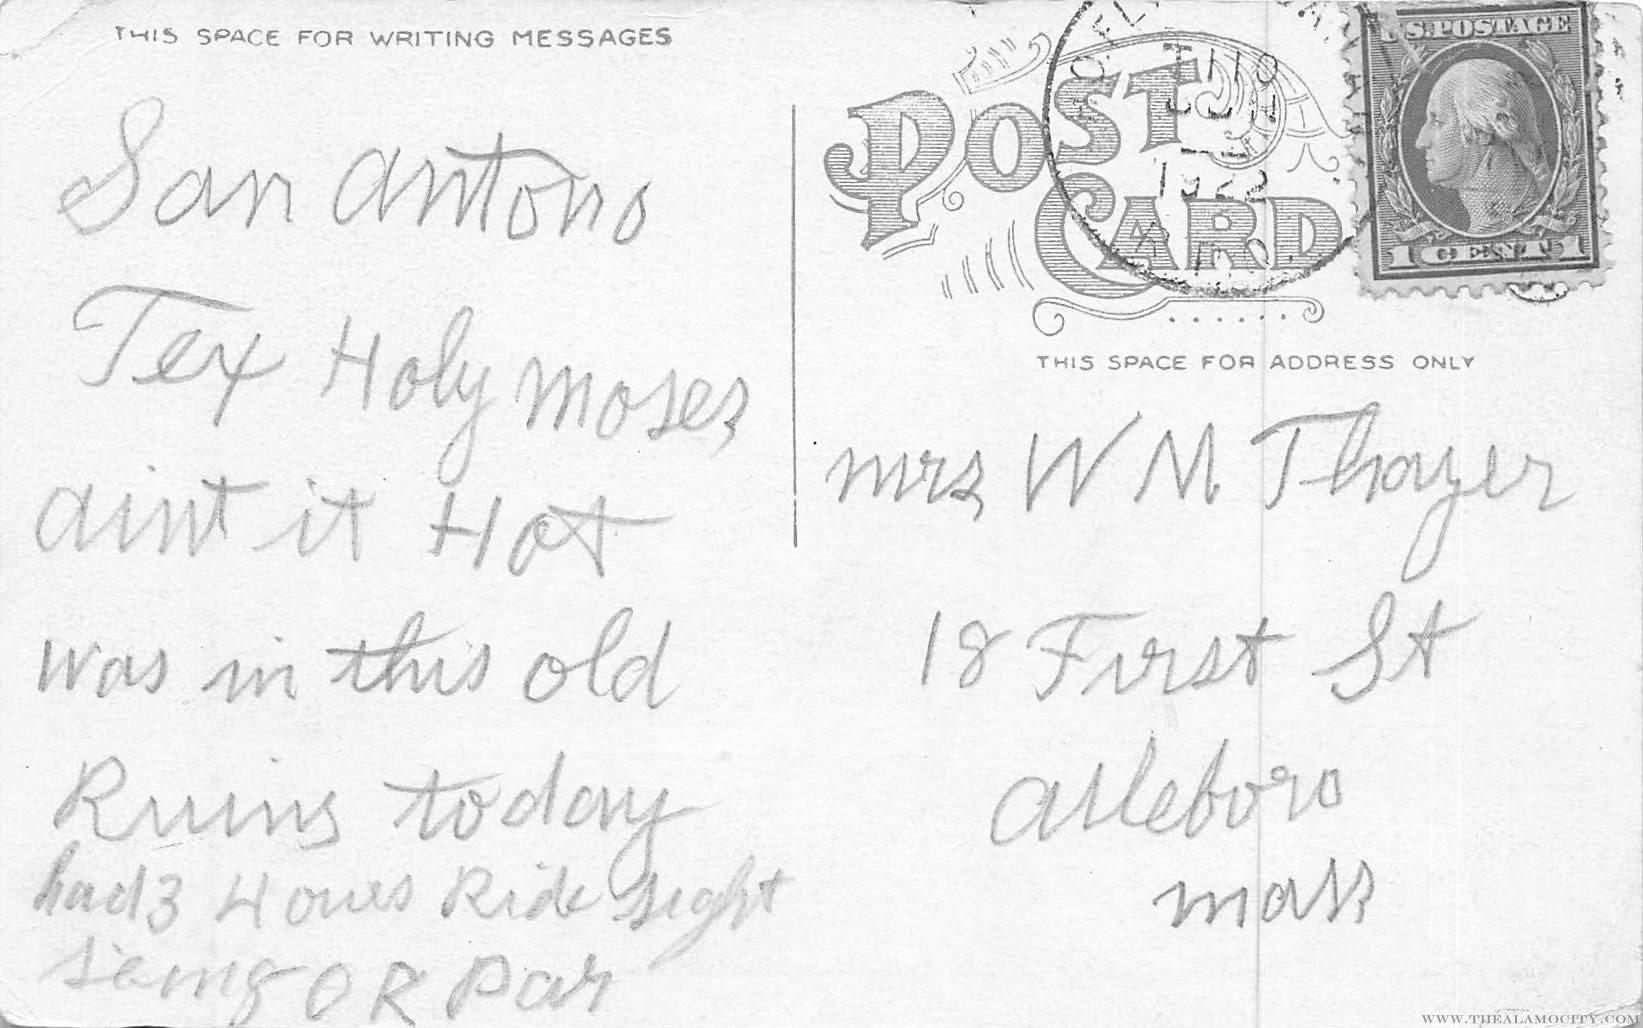 THIS SPACE FOR WRITING MESSAGES
San Antono
Tex Holy Moses
aint it Hot
was in this old
Ruins today
had 3 Hours Ride sight
seing OR Par
POST CARD
1922
U.S. POSTAGE
1 CENT 1
THIS SPACE FOR ADDRESS ONLY
Mrs W M Thayer
18 First St
Attleboro
Mass
WWW.THEALAMOCITY.COM